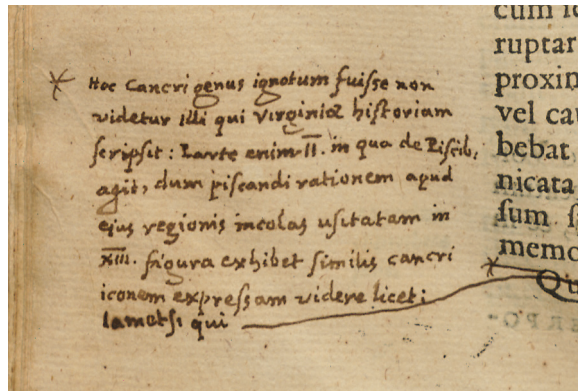 * Hoc Cancri genus ignotum fuisse non
videtur illi qui Virginiæ historiam
scripsit: Parte enim II. in qua de Piscib.
agit, dum piscandi rationem apud
ejus regionis incolas usitatam in
XIII. figura exhibet similis cancri
iconem expressam videre licet;
tametsi qui
cum
ruptar
proxim
vel cau
bebat
nicata
sum
memo
* Qu